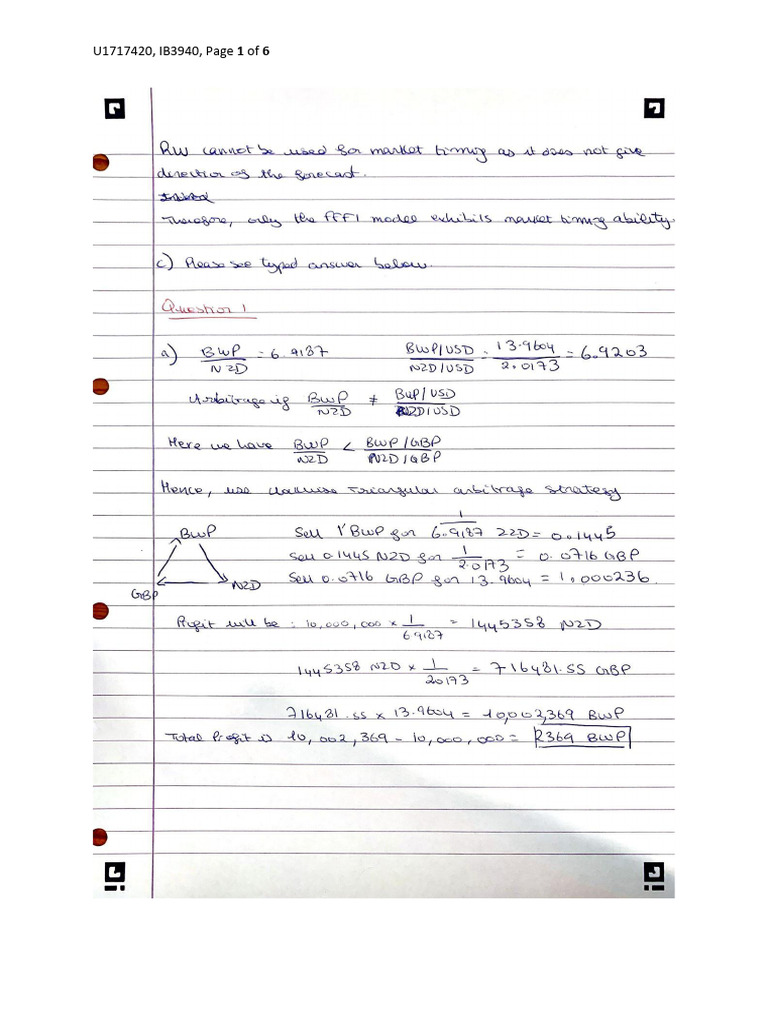 U1717420, IB3940, Page 1 of 6
RW cannot be used for market timing as it does not give
direction of the forecast.
Therefore, only the FFF1 model exhibits market timing ability.
c) Please see typed answer below.
Question 1
a) BWP/NZD = 6.9187 BWP/USD / NZD/USD = 13.9604/2.0173 = 6.9203
Arbitrage if BWP/NZD ≠ BWP/USD / NZD/USD
Here we have BWP/NZD < BWP/GBP / NZD/GBP
Hence, use clockwise Triangular arbitrage strategy
BWP Sell 1 BWP for 1/6.9187 ZZD = 0.1445
Sell 0.1445 NZD for 1/2.0173 = 0.0716 GBP
GBP NZD Sell 0.0716 GBP for 13.9604 = 1,000236.
Profit will be : 10,000,000 × 1/69187 = 1445358 NZD
1445358 NZD × 1/20173 = 716481.55 GBP
716481.55 × 13.9604 = 10,002,369 BWP
Total Profit is 10,002,369 - 10,000,000 = 2369 BWP